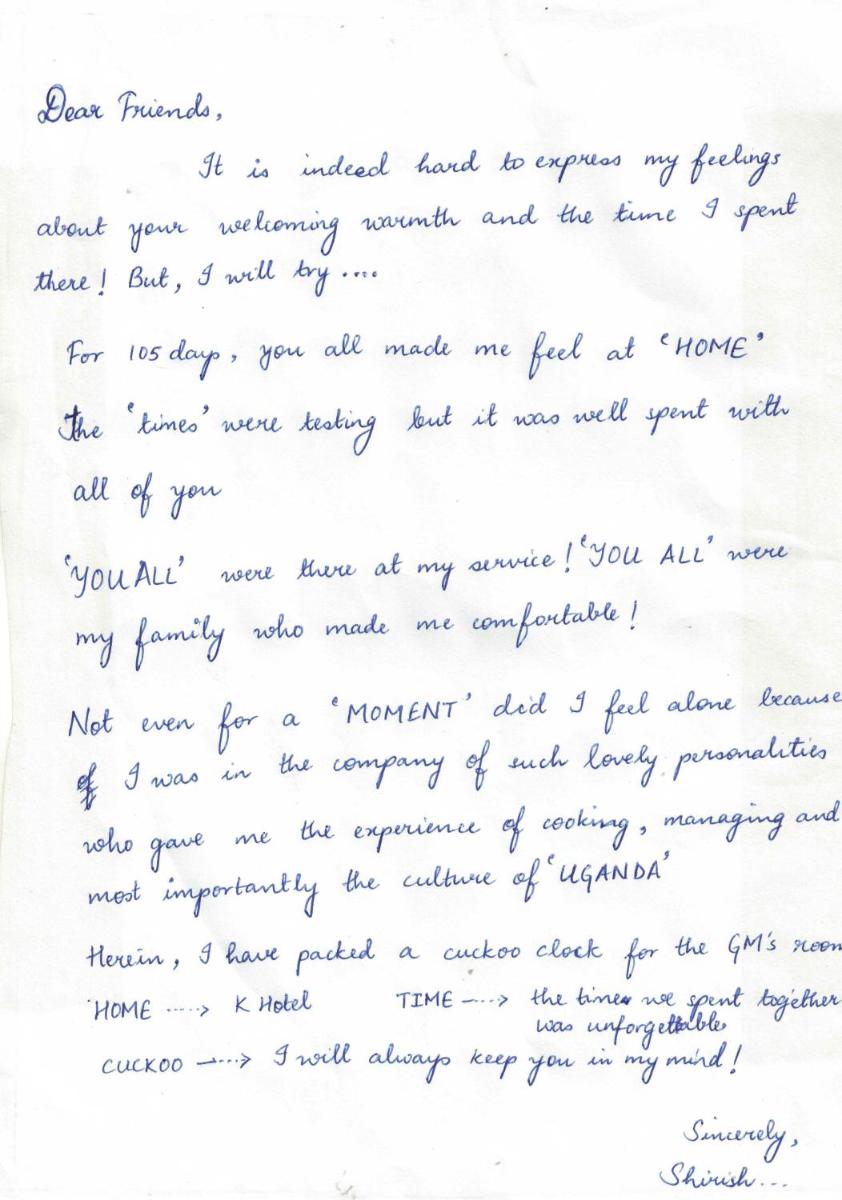 Dear Friends,
It is indeed hard to express my feelings
about your welcoming warmth and the time I spent
there! But, I will try ....
For 105 days, you all made me feel at 'HOME'
The 'times' were testing but it was well spent with
all of you
'YOU ALL' were there at my service! 'YOU ALL' were
my family who made me comfortable!
Not even for a 'MOMENT' did I feel alone because
of I was in the company of such lovely personalities
who gave me the experience of cooking, managing and
most importantly the culture of 'UGANDA'
Herein, I have packed a cuckoo clock for the GM's room
HOME .....> K Hotel TIME ----> the time we spent together
was unforgettable
CUCKOO ----> I will always keep you in my mind!
Sincerely,
Shirish...